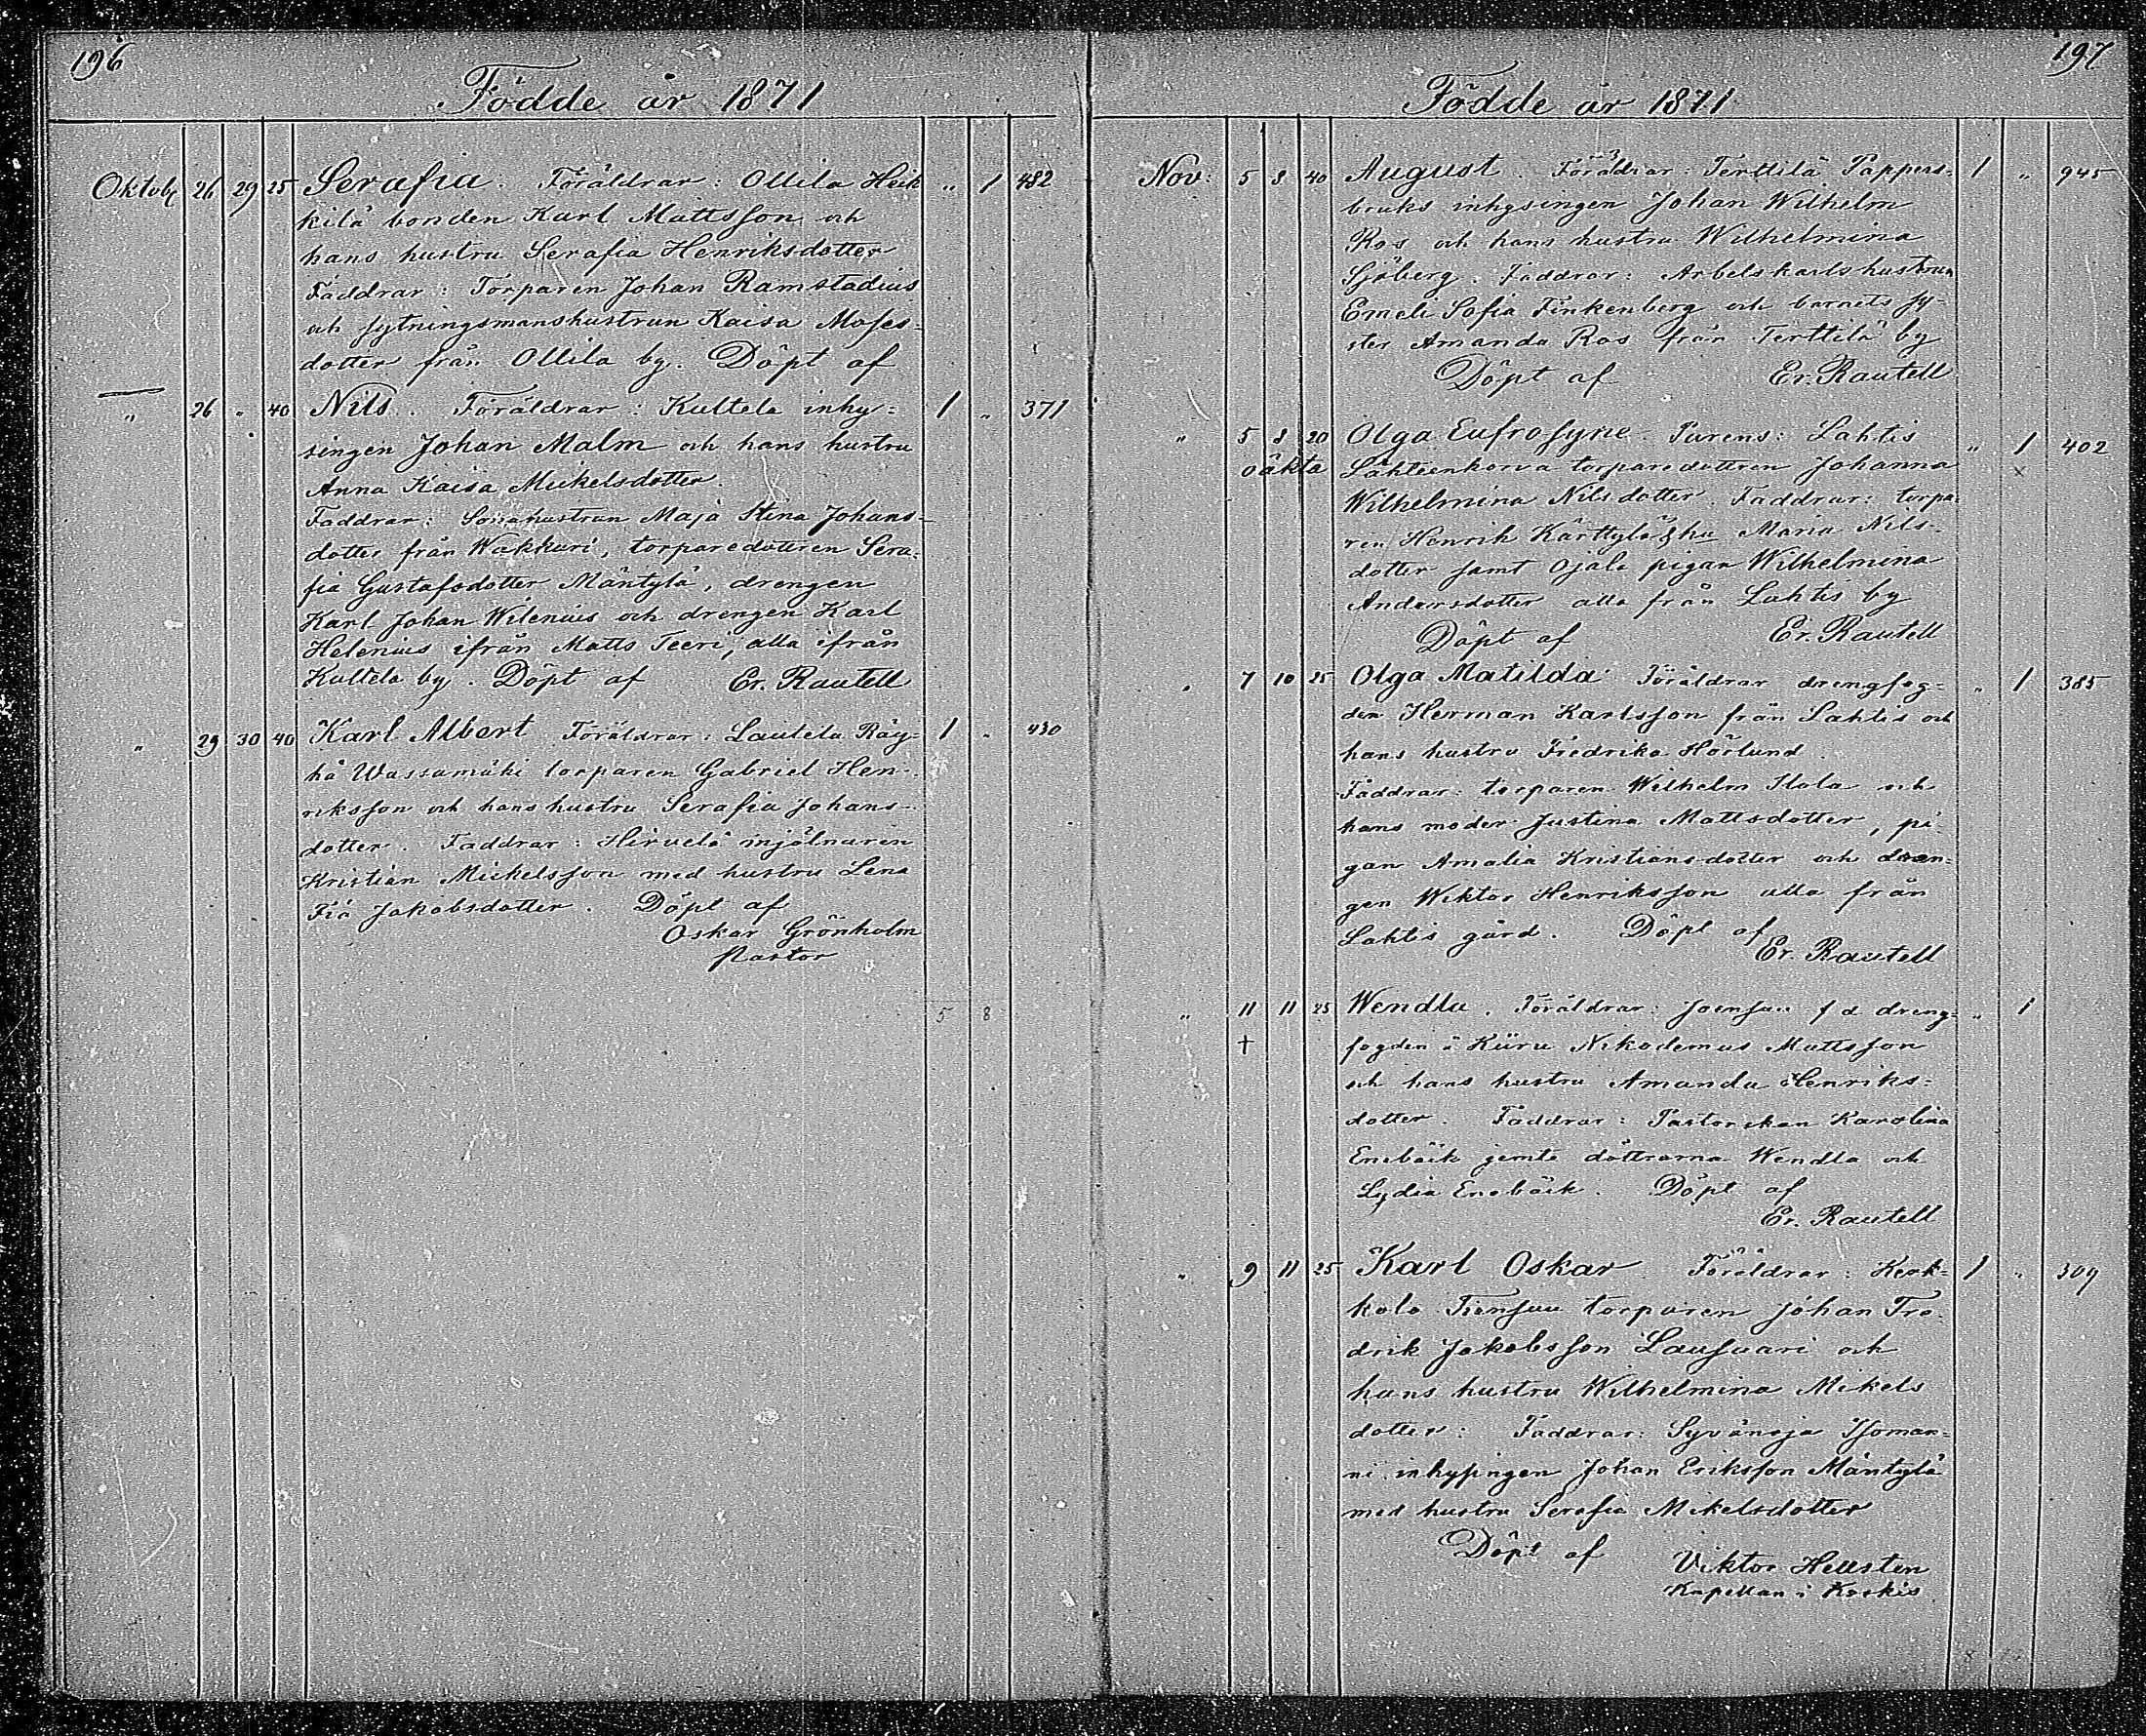 196
Födde år 1871
Oktobr 26 29 25 Serafia. Föräldrar: Ollila Heik " 1 482
kilä bonden Karl Mattsson och
hans hustru Serafia Henriksdotter
Faddrar: Torparen Johan Ramstadius
och sytningsmanshustrun Kaisa Moses-
dotter från Ollila by. Döpt af
" 26 " 40 Nils. Föräldrar: Kultela inhy= 1 " 371
singen Johan Malm och hans hustru
Anna Kaisa Mickelsdotter.
Faddrar: Sonahustrun Maja Stina Johans-
dotter från Wakkuri, torparedottren Sera-
fia Gustafsdotter Mäntylä, drengen
Karl Johan Wilenius och drengen Karl
Helenius ifrån Matts Teeri, alla ifrån
Kultela by. Döpt af Er. Rautell
" 29 30 40 Karl Albert Föräldrar: Lautela Räy- 1 " 430
hä Wassamäki torparen Gabriel Hen-
riksson och hans hustru Serafia Johans-
dotter. Faddrar: Hirvelä mjölnaren
Kristian Mickelsson med hustru Lena
Fia Jakobsdotter. Döpt af
Oskar Grönholm
Pastor
5 8
197
Födde år 1871
Nov: 5 8 40 August. Föräldrar: Terttilä Pappers- 1 " 945
bruks inhysingen Johan Wilhelm
Ros och hans hustru Wilhelmina
Sjöberg. Faddrar: Arbetskarlshustrun
Emeli Sofia Finkenberg och barnets sy-
ster Amanda Ros från Terttilä by
Döpt af Er. Rautell
" 5 8 20 Olga Eufrosyne. Parens: Lahtis " 1 402
oäkta Lähteenkorva torparedottren Johanna x
Wilhelmina Nilsdotter. Faddrar: torpa-
ren Henrik Kärttylä & hu Maria Nils-
dotter samt Ojala pigan Wilhelmina
Andersdotter alla från Lahtis by
Döpt af Er. Rautell
" 7 10 25 Olga Matilda. Föräldrar drengfog- " 1 385
den Herman Karlsson från Lahtis och
hans hustru Fredrika Hörlund.
Faddrar: torparen Wilhelm Ilola och
hans moder Justina Mattsdotter, pi-
gan Amalia Kristiansdotter och dren-
gen Wiktor Henriksson alla från
Lahtis gård. Döpt af
Er. Rautell
" 11 11 25 Wendla. Föräldrar: Joensuu f d dreng- " 1
† fogden i Kiiru Nikodemus Mattsson
och hans hustru Amanda Henriks-
dotter. Faddrar: Pastorskan Karolina
Enebäck jemte döttrarna Wendla och
Lydia Enebäck. Döpt af
Er. Rautell
" 9 11 25 Karl Oskar. Föräldrar: Kerk- 1 " 309
kola Tiensuu torparen Johan Fre-
drik Jakobsson Laususari och
hans hustru Wilhelmina Mikels
dotter: Faddrar: Syvänoja Isoman-
ni inhysingen Johan Eriksson Mäntylä
med hustru Serafia Mikelsdotter
Döpt af Viktor Hellsten
Kapellan i Koskis